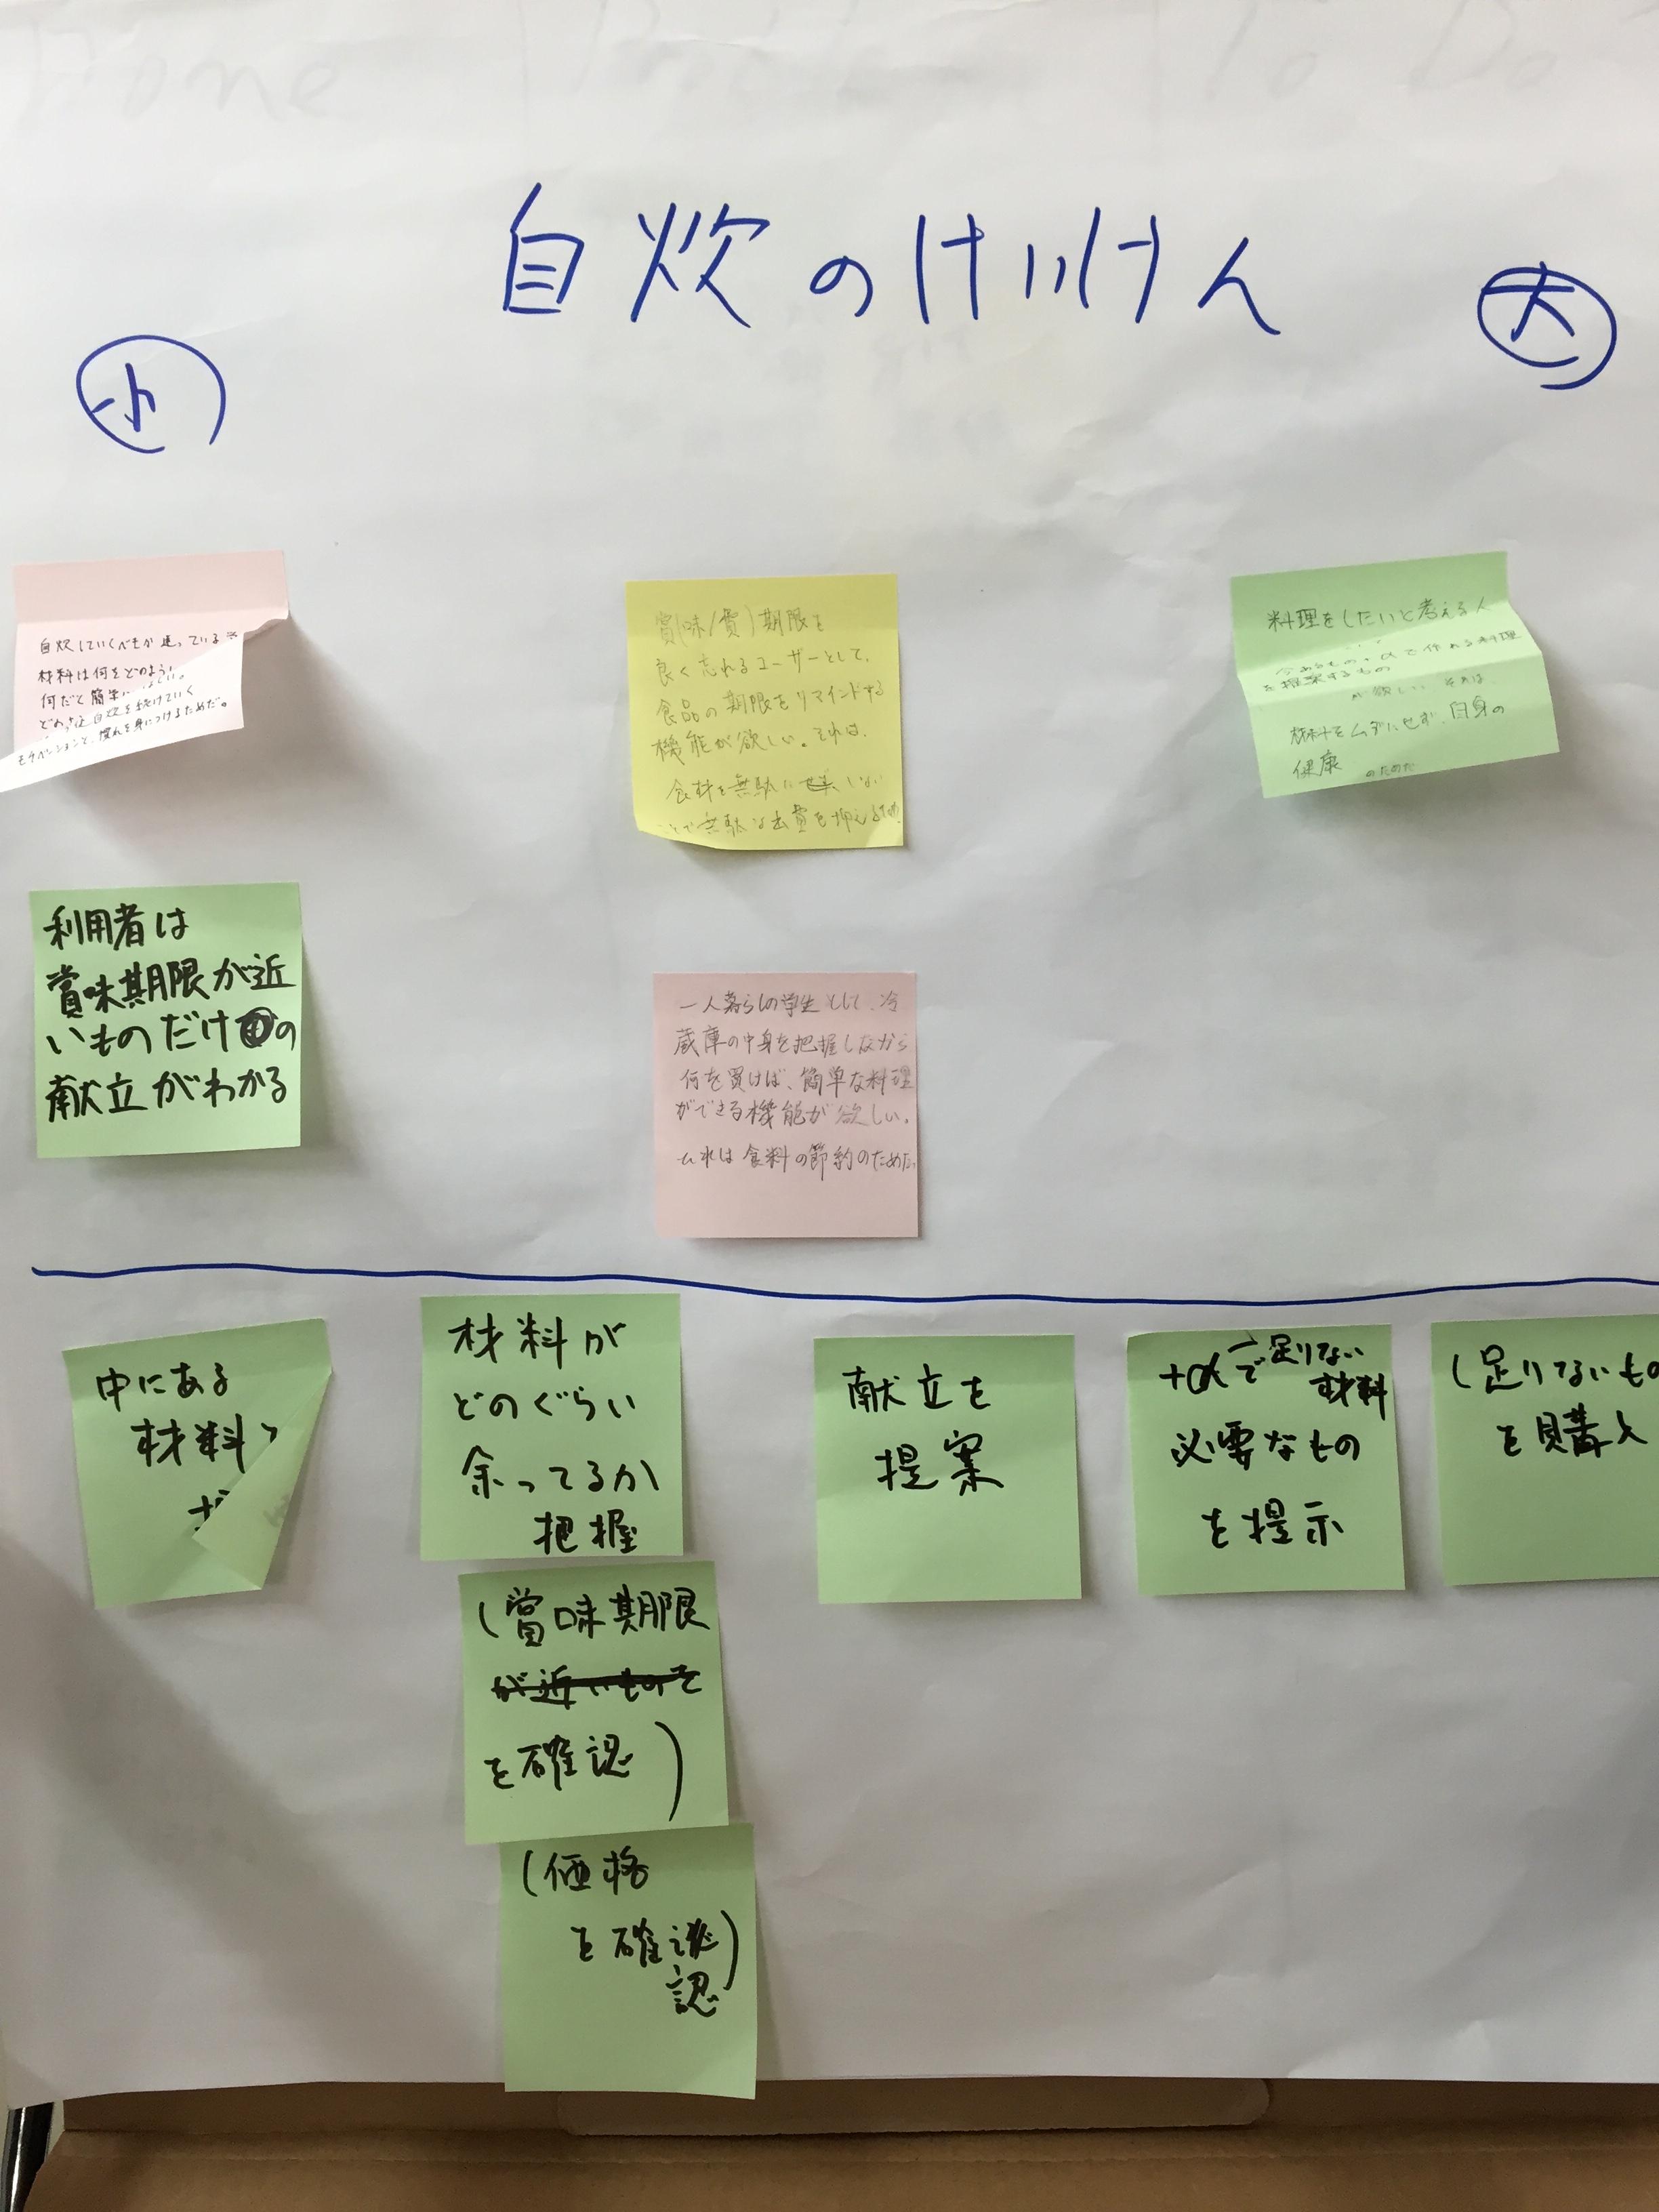 Done
To Do
自炊のけいけん
小
大
自炊していくべきか迷っている
材料は何をどのように
何だと簡単に
自炊を続けていく
モチベーションと、慣れを身につけるためだ。
賞(味/費)期限を
良く忘れるユーザーとして、
食品の期限をリマインドする
機能が欲しい。それは、
食材を無駄に
ことで無駄な出費を抑えるため
料理をしたいと考える人
今あるもの+αで作れる料理
を提案するもの
が欲しい それは、
材料をムダにせず、自身の
健康 のためだ
利用者は
賞味期限が近
いものだけの
献立がわかる
一人暮らしの学生として、冷
蔵庫の中身を把握しながら
何を買けば、簡単な料理
ができる機能が欲しい。
それは食料の節約のためだ
中にある
材料
材料が
どのぐらい
余ってるか
把握
献立を
提案
+αで足りない
材料
必要なもの
を提示
(足りてないもの
を購入
(賞味期限
が近いものを
を確認)
(価格
を確認)
認